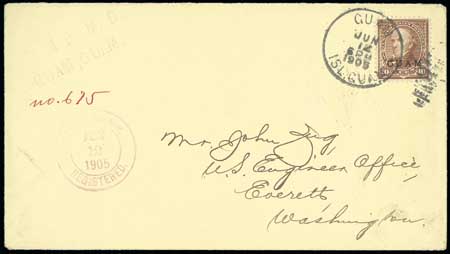 GUAM, GUAM
no. 675
GUAM
JUN
12
1905
ISL. GUAM
GUAM
10
JUN
12
1905
REGISTERED.
Mr. John Zug
U.S. Engineer Office,
Everett
Washington.